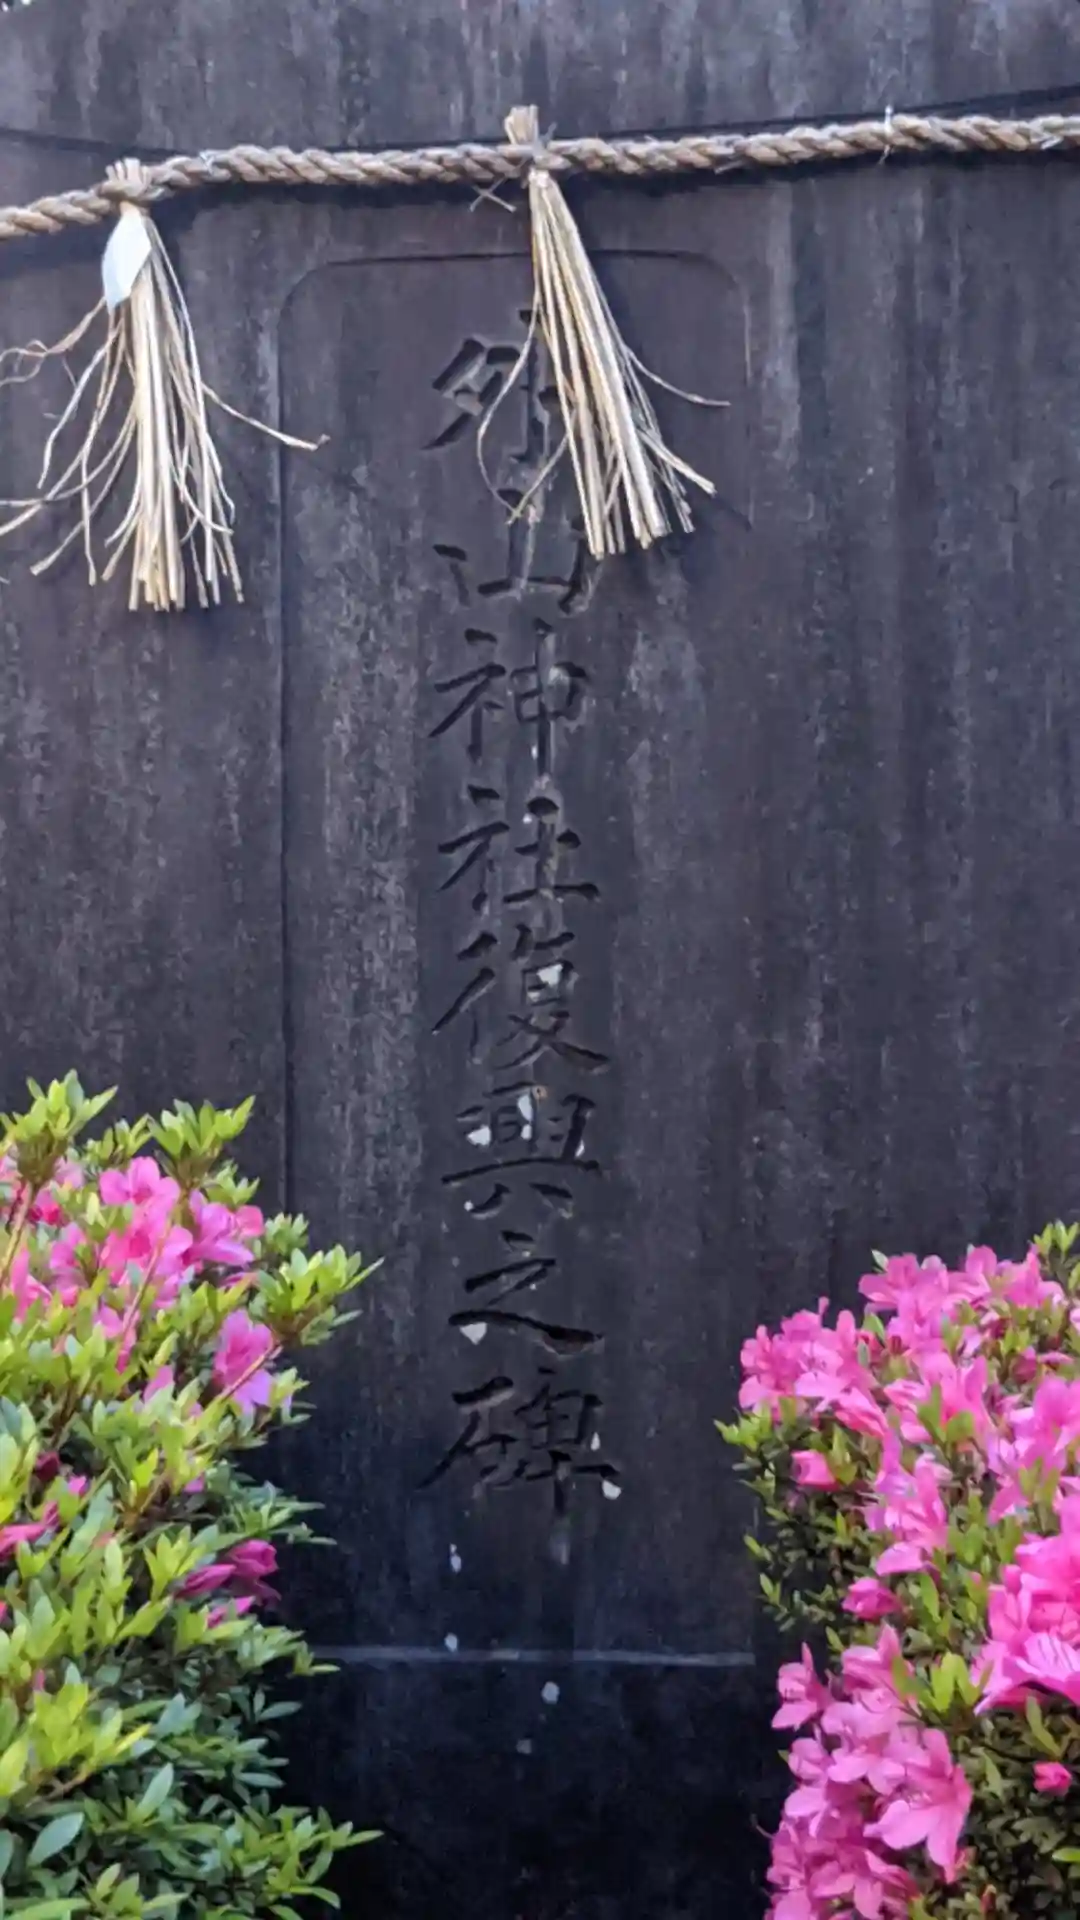 山神社復興之碑